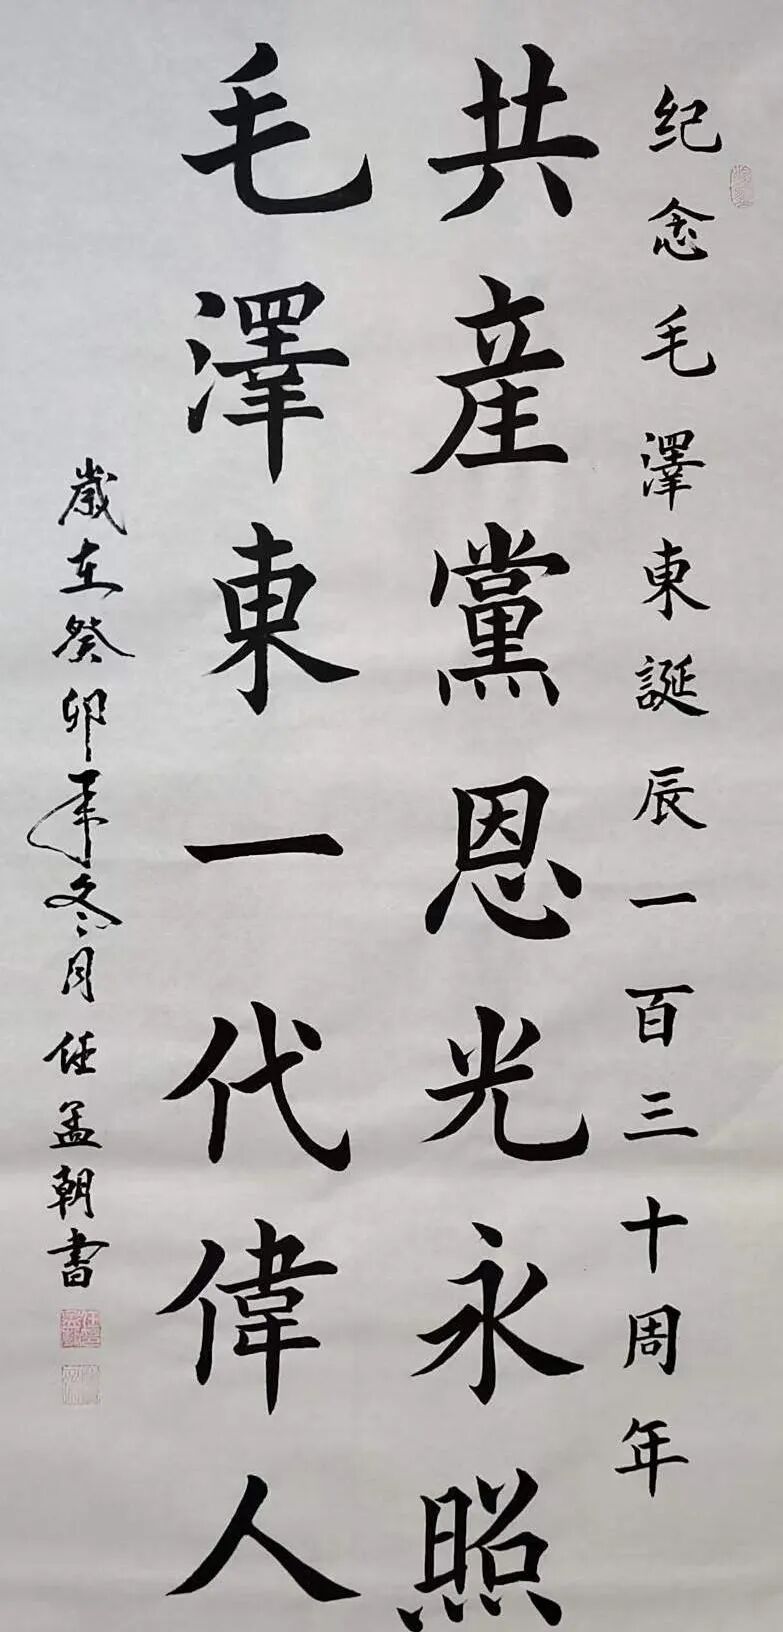 纪念毛澤東誕辰一百三十周年
共產黨恩光永照
毛澤東一代偉人
歲在癸卯年冬月任孟朝書